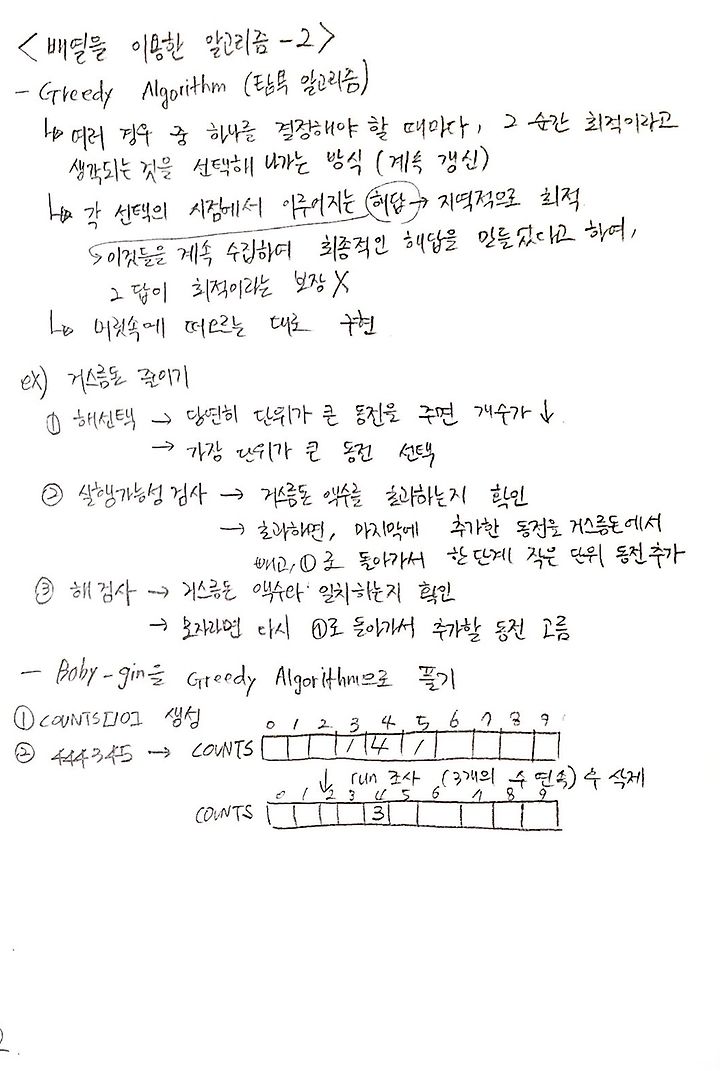 <배열을 이용한 알고리즘 - 2>
- Greedy Algorithm (탐욕 알고리즘)
↳ 여러 경우 중 하나를 결정해야 할 때마다, 그 순간 최적이라고
생각되는 것을 선택해 나가는 방식 (계속 갱신)
↳ 각 선택의 시점에서 이루어지는 해답 → 지역적으로 최적
↳ 이것들을 계속 수집하여 최종적인 해답을 만들었다고 하여,
그 답이 최적이라는 보장 X
↳ 머릿속에 떠오르는 대로 구현
ex) 거스름돈 줄이기
① 해선택 → 당연히 단위가 큰 동전을 주면 개수가 ↓
→ 가장 단위가 큰 동전 선택
② 실행가능성 검사 → 거스름돈 액수를 초과하는지 확인
→ 초과하면, 마지막에 추가한 동전을 거스름돈에서
빼고, ①로 돌아가서 한 단계 작은 단위 동전 추가
③ 해 검사 → 거스름돈 액수와 일치하는지 확인
→ 모자라면 다시 ①로 돌아가서 추가할 동전 고름
- Baby-gin을 Greedy Algorithm으로 풀기
① COUNTS[10] 생성
0 1 2 3 4 5 6 7 8 9
② 444345 → COUNTS 1 4 1
↓ run 조사 (3개의 수 연속) 후 삭제
0 1 2 3 4 5 6 7 8 9
COUNTS 3